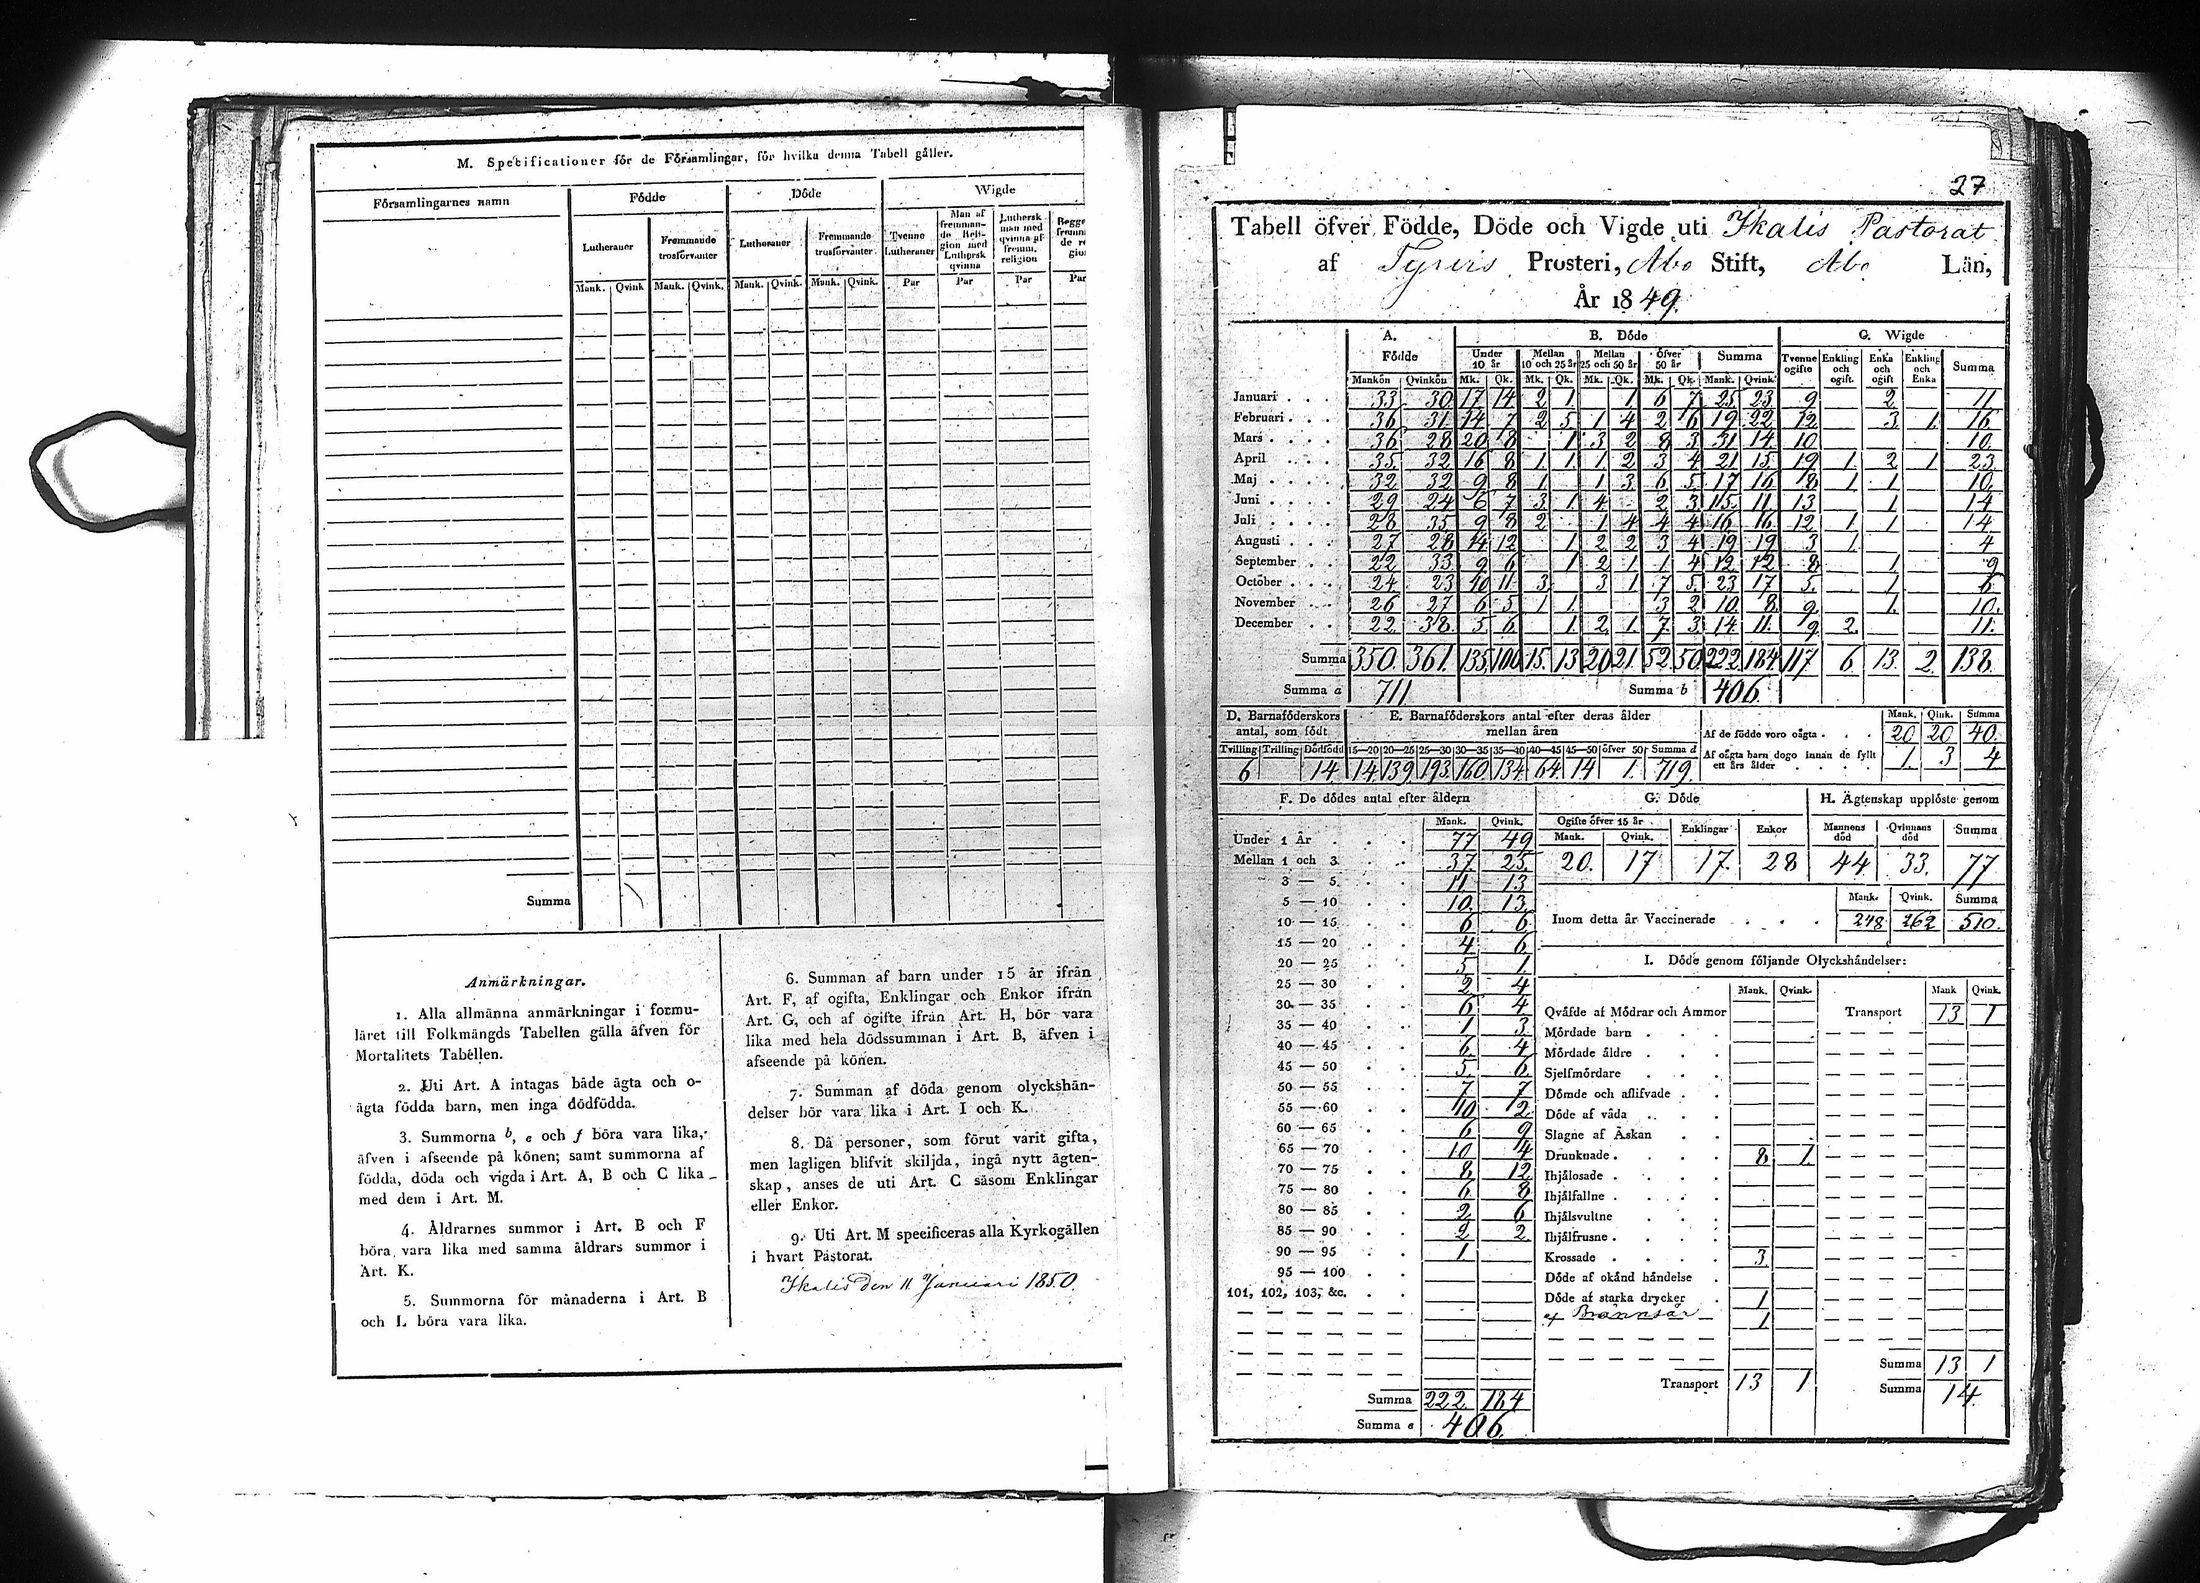 M. Specificationer för de Församlingar, för hvilka denna Tabell gäller.
Församlingarnes namn
Födde
Döde
Wigde
Lutheraner
Frammande trosförvanter
Lutheraner
Frammande trosförvanter
Tvenne Lutheraner
Man af fremmande Religion med Luthersk qvinna
Luthersk man med qvinna af fremm. religion
Mank. Qvink Mank. Qvink. Mank. Qvink. Mank. Qvink. Par Par Par Par
Summa
Anmärkningar.
1. Alla allmänna anmärkningar i formu-
läret till Folkmängds Tabellen gälla äfven för
Mortalitets Tabellen.
2. Uti Art. A intagas både ägta och o-
ägta födda barn, men inga dödfödda.
3. Summorna b, e och f böra vara lika,
äfven i afseende på könen; samt summorna af
födda, döda och vigda i Art. A, B och C lika
med dem i Art. M.
4. Åldrarnes summor i Art. B och F
böra vara lika med samma åldrars summor i
Art. K.
5. Summorna för månaderna i Art. B
och L böra vara lika.
6. Summan af barn under 15 år ifrån
Art. F, af ogifta, Enklingar och Enkor ifrån
Art. G, och af ogifte ifrån Art. H, bör vara
lika med hela dödssumman i Art. B, äfven i
afseende på könen.
7. Summan af döda genom olyckshän-
delser bör vara lika i Art. I och K.
8. Då personer, som förut varit gifta,
men lagligen blifvit skiljda, ingå nytt ägten-
skap, anses de uti Art. C såsom Enklingar
eller Enkor.
9. Uti Art. M specificeras alla Kyrkogällen
i hvart Pastorat.
Ikalis den 11 Januari 1850.
27
Tabell öfver Födde, Döde och Vigde uti Ikalis Pastorat
af Tyrvis Prosteri, Åbo Stift, Åbo Län,
År 1849.
A. Födde
B. Döde
G. Wigde
Under 10 år
Mellan 10 och 25 år
Mellan 25 och 50 år
öfver 50 år
Summa
Tvenne ogifte
Enkling och ogift.
Enka och ogift
Enkling och Enka
Summa
Mankön Qvinkön Mk. Qk. Mk. Qk. Mk. Qk. Mk. Qk. Mank. Qvink
Januari 33 30 17 14 2 1 1 6 7 25 23 9 2 11
Februari 36 31 14 7 2 5 1 4 2 6 19 22 12 3 1 16
Mars 36 28 20 8 1 3 2 8 3 31 14 10 10
April 35 32 16 8 1 1 1 2 3 4 21 15 19 1 2 1 23
Maj 32 32 9 8 1 1 3 6 5 17 16 8 1 1 10
Juni 29 24 6 7 3 1 4 2 3 15 11 13 1 14
Juli 28 35 9 8 2 1 4 4 4 16 16 12 1 1 14
Augusti 27 28 14 12 1 2 2 3 4 19 19 3 1 4
September 22 33 9 6 1 2 1 1 4 12 12 8 1 9
October 24 23 10 11 3 3 1 7 5 23 17 5 1 6
November 26 27 6 5 1 1 3 2 10 8 9 1 10
December 22 38 5 6 1 2 1 7 3 14 11 9 2 11
Summa 350 361 135 100 15 13 20 21 52 50 222 184 117 6 13 2 138
Summa a 711 Summa b 406
D. Barnaföderskors antal, som födt
E. Barnaföderskors antal efter deras ålder mellan åren
Mank. Qink. Summa
Af de födde voro oägta 20 20 40
Af oägta barn dogo innan de fyllt ett års ålder 1 3 4
Tvilling Trilling Dödfödd 15—20 20—25 25—30 30—35 35—40 40—45 45—50 öfver 50 Summa d
6 14 14 139 193 160 134 64 14 1 719
F. De dödes antal efter åldern
Mank. Qvink.
Under 1 År 77 49
Mellan 1 och 3 37 25
3 — 5 11 13
5 — 10 10 13
10 — 15 6 6
15 — 20 4 6
20 — 25 5 1
25 — 30 2 4
30 — 35 6 4
35 — 40 1 3
40 — 45 6 4
45 — 50 5 6
50 — 55 7 7
55 — 60 10 2
60 — 65 6 9
65 — 70 10 4
70 — 75 8 12
75 — 80 6 8
80 — 85 2 6
85 — 90 2 2
90 — 95 1
95 — 100
101, 102, 103, &c.
Summa 222 184
Summa e 406
G. Döde
Ogifte öfver 15 år
Mank. Qvink. Enklingar Enkor
20 17 17 28
H. Ägtenskap upplöste genom
Mannens död Qvinnans död Summa
44 33 77
Mank. Qvink. Summa
Inom detta år Vaccinerade 248 262 510
I. Döde genom följande Olyckshändelser:
Mank. Qvink. Mank Qvink.
Qväfde af Mödrar och Ammor Transport 13 1
Mördade barn
Mördade äldre
Sjelfmördare
Dömde och aflifvade
Döde af våda
Slagne af Åskan
Drunknade 8 1
Ihjälosade
Ihjälfallne
Ihjälsvultne
Ihjälfrusne
Krossade 3
Döde af okänd händelse
Döde af starka drycker 1
af Brännsår 1
Summa 13 1
Transport 13 1 Summa 14